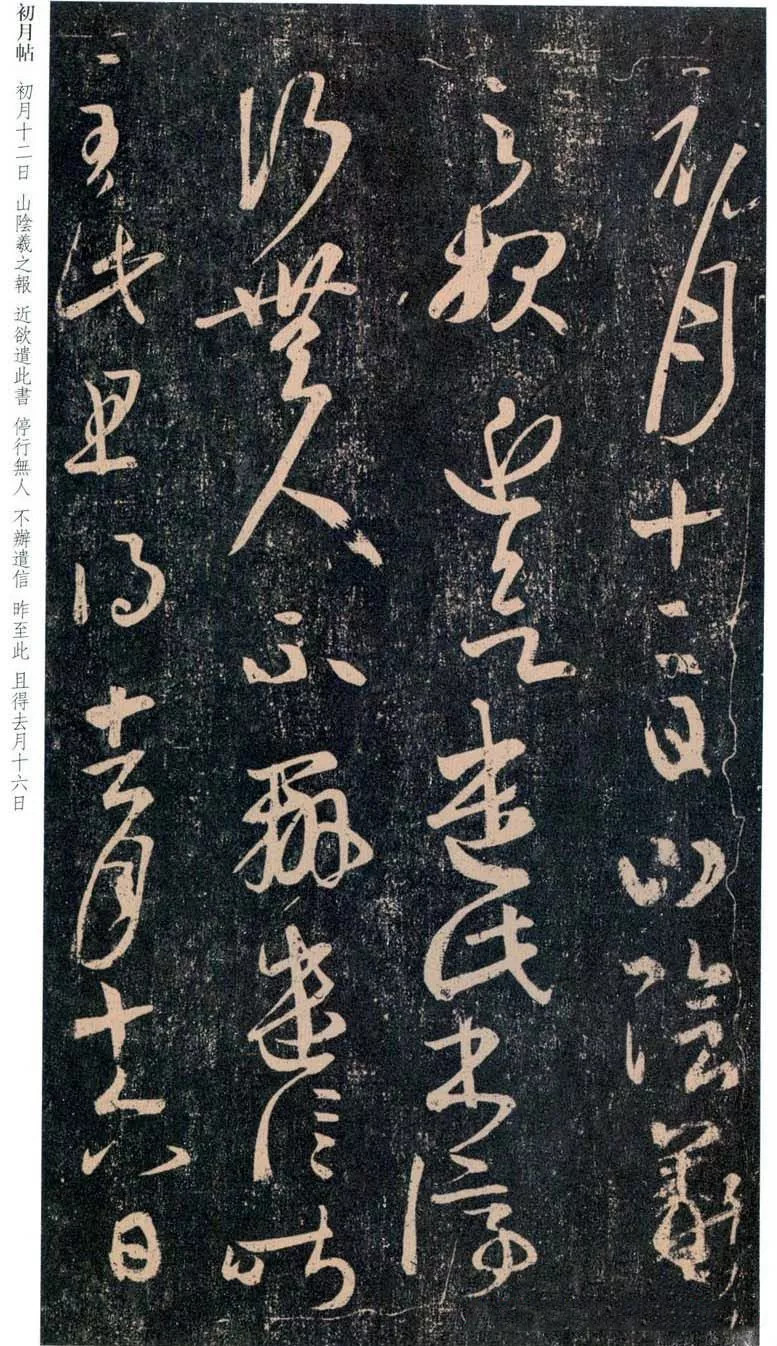 初月十二日山陰羲
之報近欲遣此書停
行無人不辦遣信昨
至此且得去月十六日
初月帖 初月十二日 山陰羲之報 近欲遣此書 停行無人 不辦遣信 昨至此 且得去月十六日